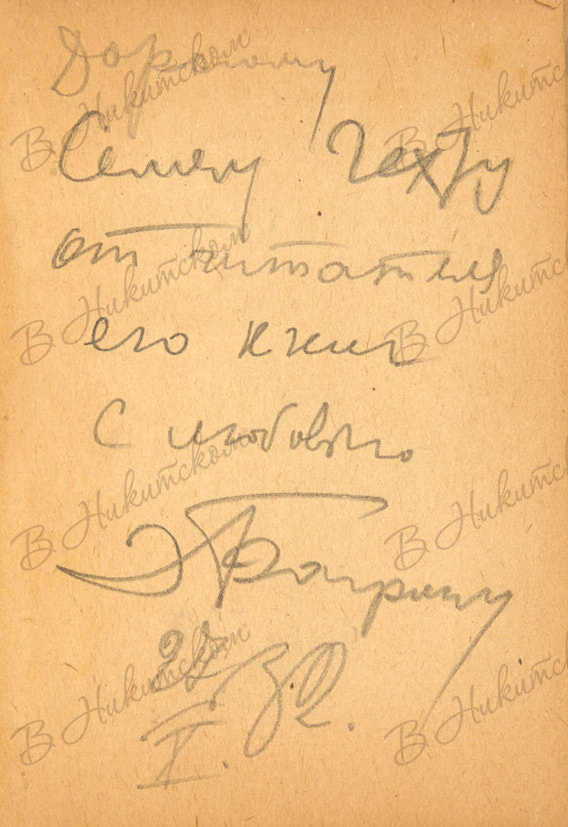 Дорогому
Семену Гехту
от читателя
его книг
С любовью
Э Багрицк
22
I. 32.
В Никитском
В Никитском
В Никитском
В Никитском
В Никитском
В Никитском
В Никитском
В Никитском